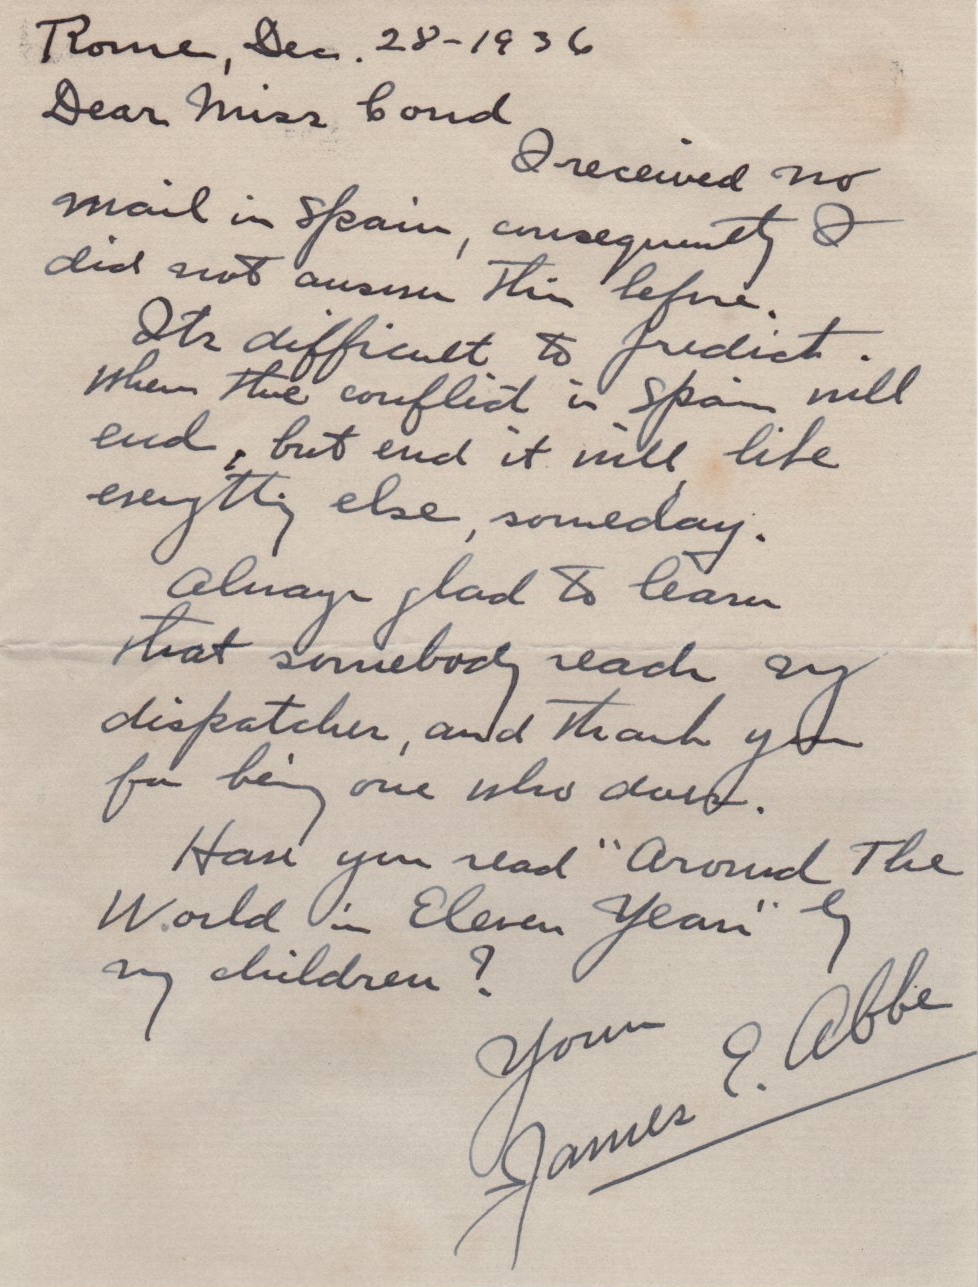 Rome, Dec. 28-1936
Dear Miss Cond
I received no
mail in Spain, consequently I
did not answer this before.
Its difficult to predict.
when the conflict in Spain will
end, but end it will, like
everything else, someday.
Always glad to learn
that somebody reads my
dispatches, and thank you
for being one who does.
Have you read "Around The
World in Eleven Years" by
my children?
Yours
James E. Abbe